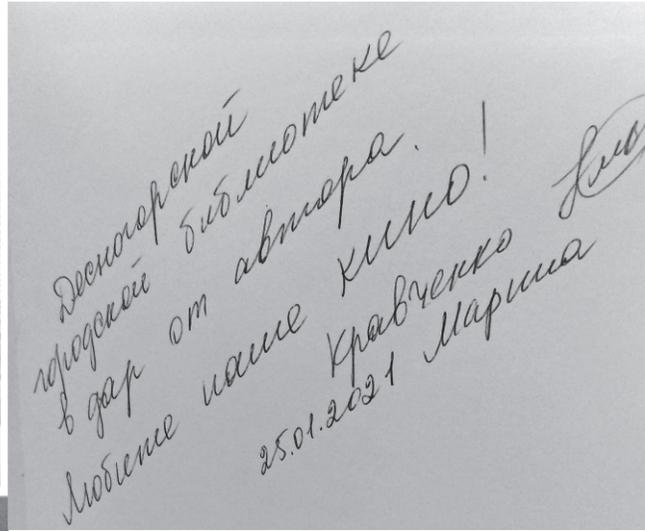 Десногорской
городской библиотеке
в дар от автора.
Любите наше кино!
Кравченко
25.01.2021 Марина